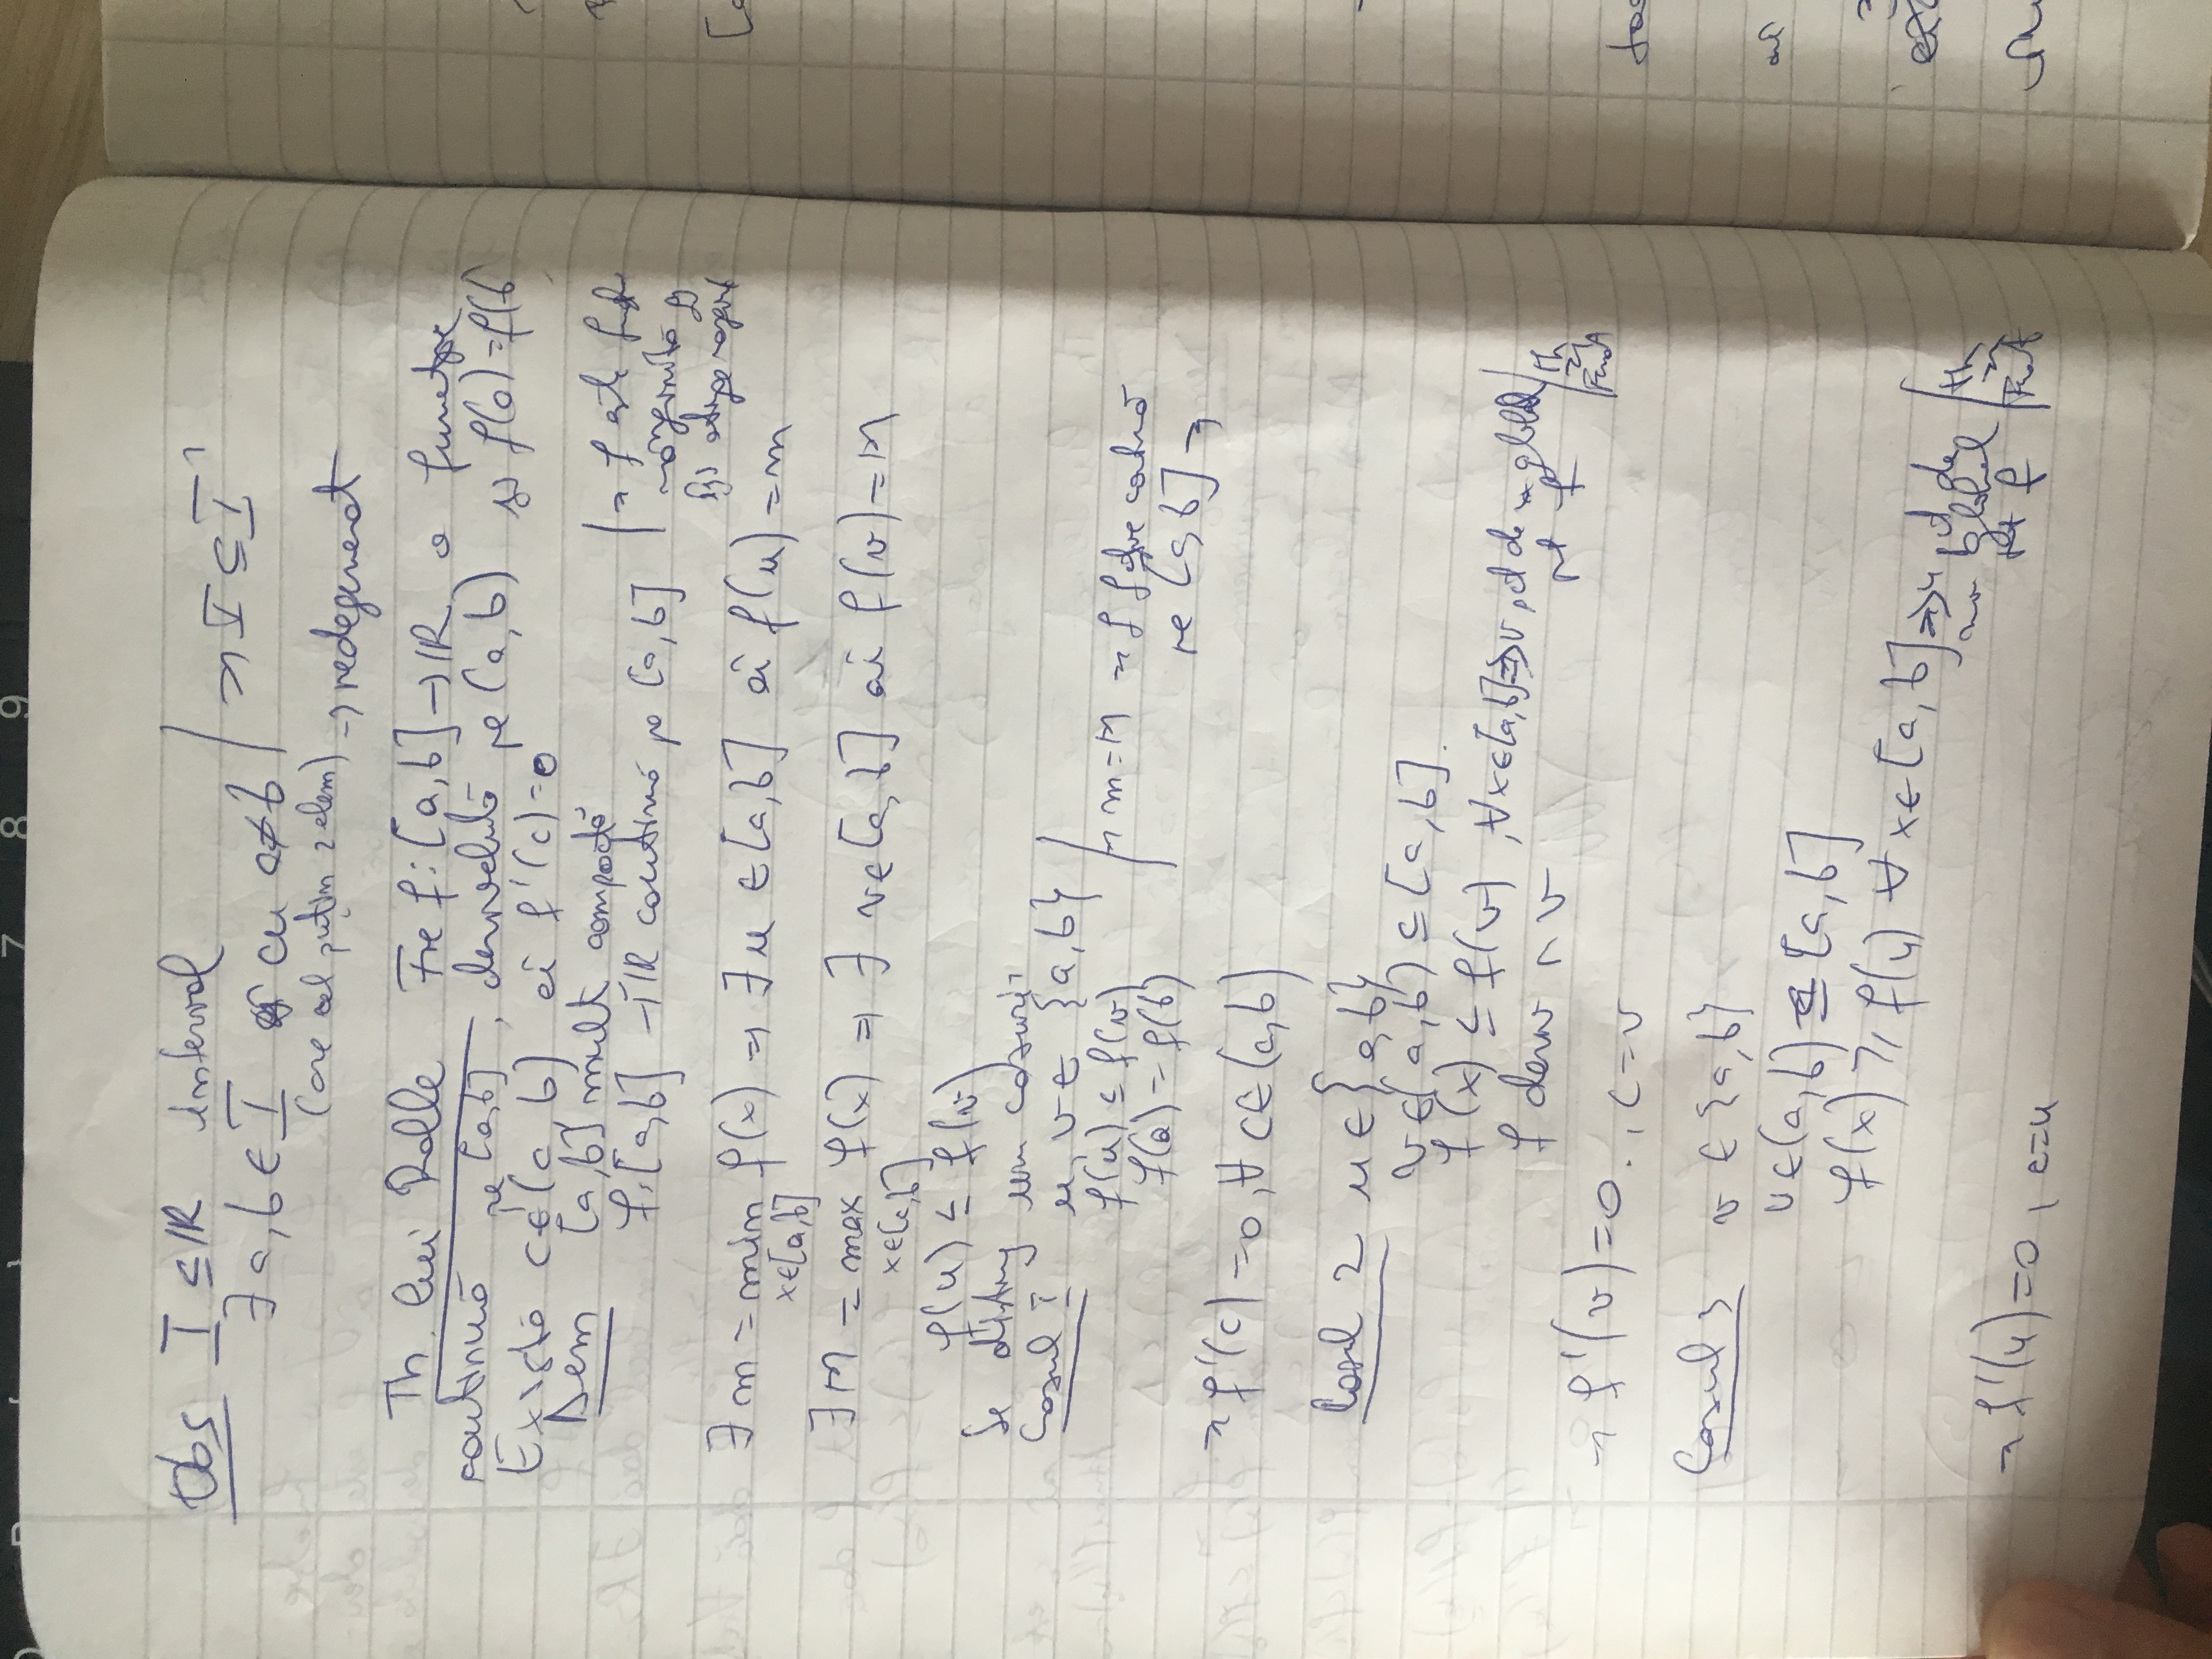 7 8 9
Obs I ⊆ IR interval | => I ⊆ I'
∃ a, b ∈ I cu a≠b
(are cel puțin 2 elem) → nedegenerat
Th. lui Rolle Fie f: [a,b] → IR o funcție
continuă pe [a,b], derivabilă pe (a,b) și f(a)=f(b
Există c∈(a,b) aî f'(c)=0
Dem [a,b] mult compactă
f: [a,b] → IR continuă pe [a,b] | => f este
mărginită și
își atinge marginile
∃ m = min f(x) => ∃ u ∈ [a,b] aî f(u) = m
x∈[a,b]
∃ M = max f(x) => ∃ v∈[a,b] aî f(v) = M
x∈[a,b]
f(u) ≤ f(v)
Se disting urm cazuri:
Cazul I u, v ∈ {a,b}
f(u) ≤ f(v) | => m=M => f
f(a) = f(b)
pe [a,b] =>
=> f'(c) = 0, ∀ c∈(a,b)
Cazul 2 u ∈ {a,b}
v∈(a,b) ⊆ [a,b].
f(x) ≤ f(v), ∀x∈[a,b] => v pct de global
f deriv în v pt f | Th => Fermat
=> f'(v) = 0., c=v
Cazul 3 v ∈ {a,b}
u∈(a,b) ⊆ [a,b]
f(x) ≥ f(u) ∀ x∈[a,b] => u pct de
global
pt f | Th => Fermat
=> f'(u)=0, c=u